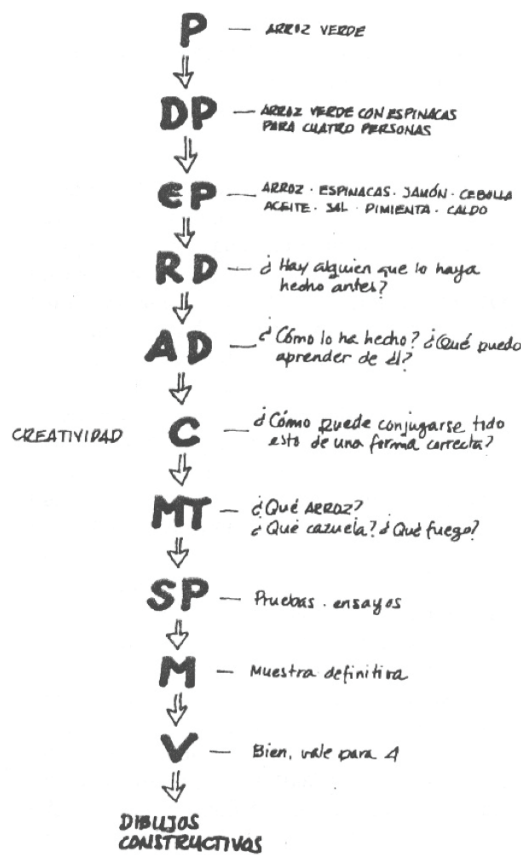 P — ARROZ VERDE
DP — ARROZ VERDE CON ESPINACAS
PARA CUATRO PERSONAS
EP — ARROZ · ESPINACAS · JAMÓN · CEBOLLA
ACEITE · SAL · PIMIENTA · CALDO
RD — ¿Hay alguien que lo haya
hecho antes?
AD — ¿Cómo lo ha hecho? ¿Qué puedo
aprender de él?
CREATIVIDAD C — ¿Cómo puede conjugarse tido
esto de una forma correcta?
MT — ¿Qué ARROZ?
¿Qué cazuela? ¿Qué fuego?
SP — Pruebas · ensayos
M — Muestra definitiva
V — Bien, vale para 4
DIBUJOS
CONSTRUCTIVOS